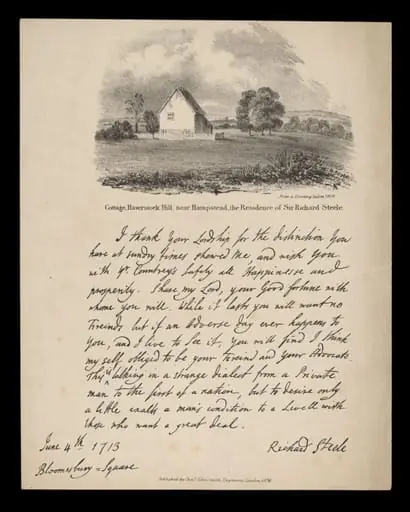 Cottage, Haverstock Hill, near Hampstead, the Residence of Sir Richard Steele.
I thank Your Lordship for the distinction You
have at sundry times showed Me, and wish You
with Yr. Countrey's safety all Happinesse and
prosperity. Share my Lord, your Good fortune with
whome you will. While it lasts you will want no
freinds but if an adverse day ever happens to
You, and I live to See it, you will find I think
my self obliged to be your freind and your Advocate.
This is talking in a strange dialect from a Private
man to the first of a nation, but to desire only
a little exalts a man's condition to a Levell with
those who want a great deal.
June 4th 1713
Richard Steele
Bloomesbury = Square